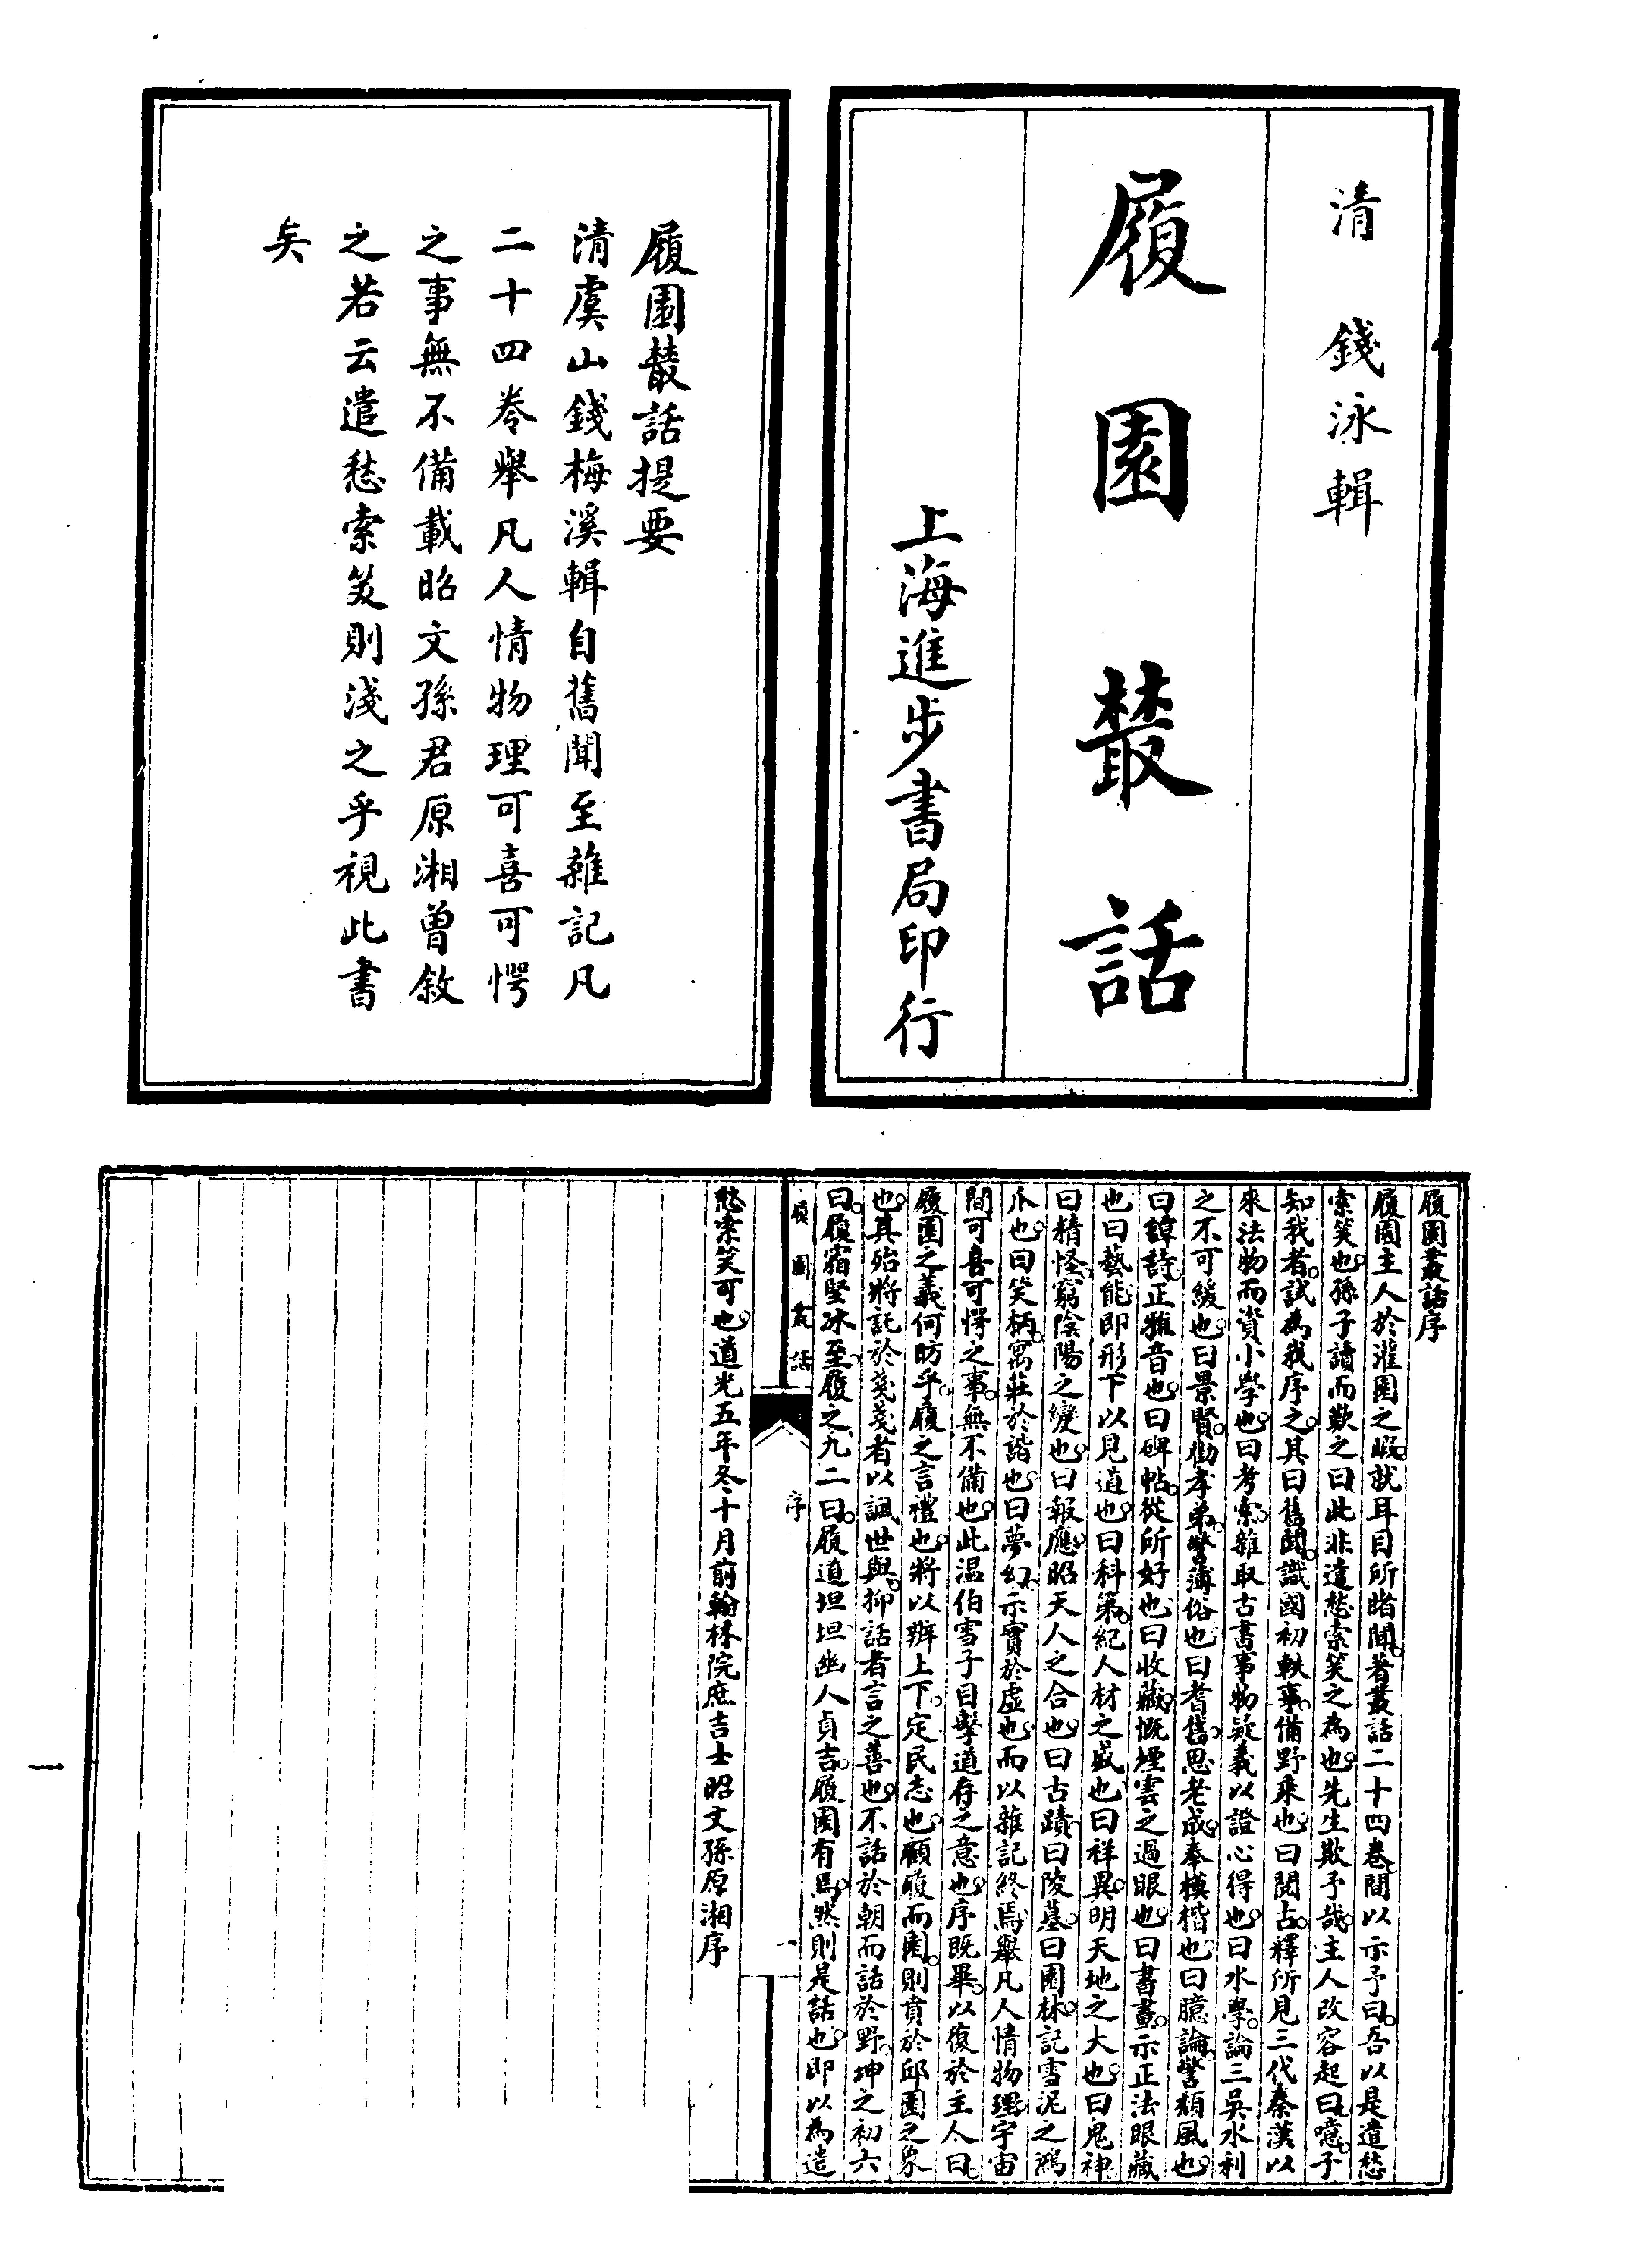 清 錢泳輯
履園叢話
上海進步書局印行
履園叢話提要
清虞山錢梅溪輯自舊聞至雜記凡
二十四卷舉凡人情物理可喜可愕
之事無不備載昭文孫君原湘曾敘
之若云遣愁索笑則淺之乎視此書
矣
履園叢話序
履園主人於灌園之暇就耳目所睹聞著叢話二十四卷間以示予曰吾以是遣愁
索笑也孫子讀而歎之曰此非遣愁索笑之為也先生欺予哉主人改容起曰噫子
知我者試為我序之其曰舊聞識國初軼事備野乘也曰閱古釋所見三代秦漢以
來法物而資小學也曰考索雜取古書事物疑義以證心得也曰水學論三吳水利
之不可緩也曰景賢勸孝弟警薄俗也曰耆舊思老成奉模楷也曰臆論警頹風也
曰譚詩正雅音也曰碑帖從所好也曰收藏慨煙雲之過眼也曰書畫示正法眼藏
也曰藝能即形下以見道也曰科第紀人材之盛也曰祥異明天地之大也曰鬼神
曰精怪窮陰陽之變也曰報應昭天人之合也曰古蹟曰陵墓曰園林記雪泥之鴻
爪也曰笑柄寓莊於諧也曰夢幻示實於虛也而以雜記終焉舉凡人情物理宇宙
間可喜可愕之事無不備也此溫伯雪子目擊道存之意也序既畢以復於主人曰
履園之義何昉乎履之言禮也將以辨上下定民志也顧履而園則賁於邱園之象
也其殆將託於戔戔者以諷世與抑話者言之善也不話於朝而話於野坤之初六
曰履霜堅冰至履之九二曰履道坦坦幽人貞吉履園有焉然則是話也即以為遣
履園叢話 序 一
愁索笑可也道光五年冬十月前翰林院庶吉士昭文孫原湘序
一